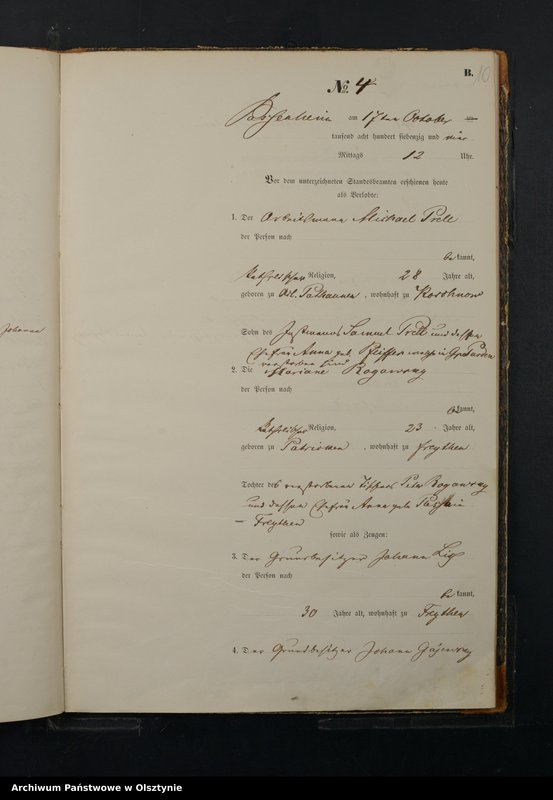 B. 10
No. 4
Passenheim am 17ten October
tausend acht hundert siebenzig und vier
Mittags 12 Uhr.
Vor dem unterzeichneten Standesbeamten erschienen heute
als Verlobte:
1. Der Arbeitsmann Michael Prell
der Person nach
be kannt,
katholischer Religion, 28 Jahre alt,
geboren zu , wohnhaft zu
Sohn des Instmanns Samuel Prell und dessen
Ehefrau Anna geb. Pfeiffer
verstorben sind
2. Die Mariane Rogowsky
der Person nach
be kannt,
katholischer Religion, 23 Jahre alt,
geboren zu , wohnhaft zu Freythen
Tochter des verstorbenen Peter Rogowsky
und dessen Ehefrau Anna geb.
— Freythen
sowie als Zeugen:
3. Der Grundbesitzer Johann
der Person nach
be kannt,
30 Jahre alt, wohnhaft zu Freythen
4. Der Grundbesitzer Johann Gajewsky
Johann
Archiwum Państwowe w Olsztynie